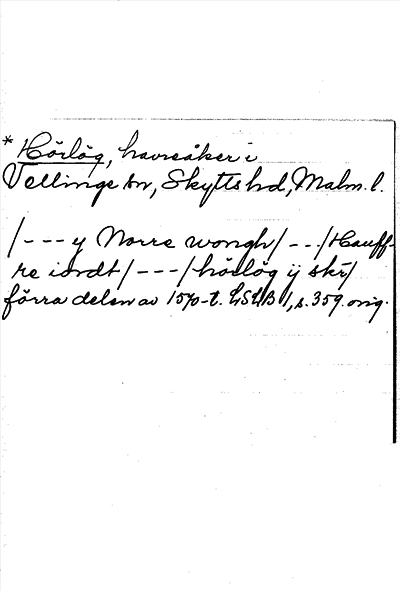 * Hörlög, havreåker i
Vellinge sn, Skytts hd, Malm. l.
/--- y Norre wongh/--/Hauff-
re iordt/---/hörlög ij skr/
förra delen av 1570-t. LSLB 1, s. 359. orig.